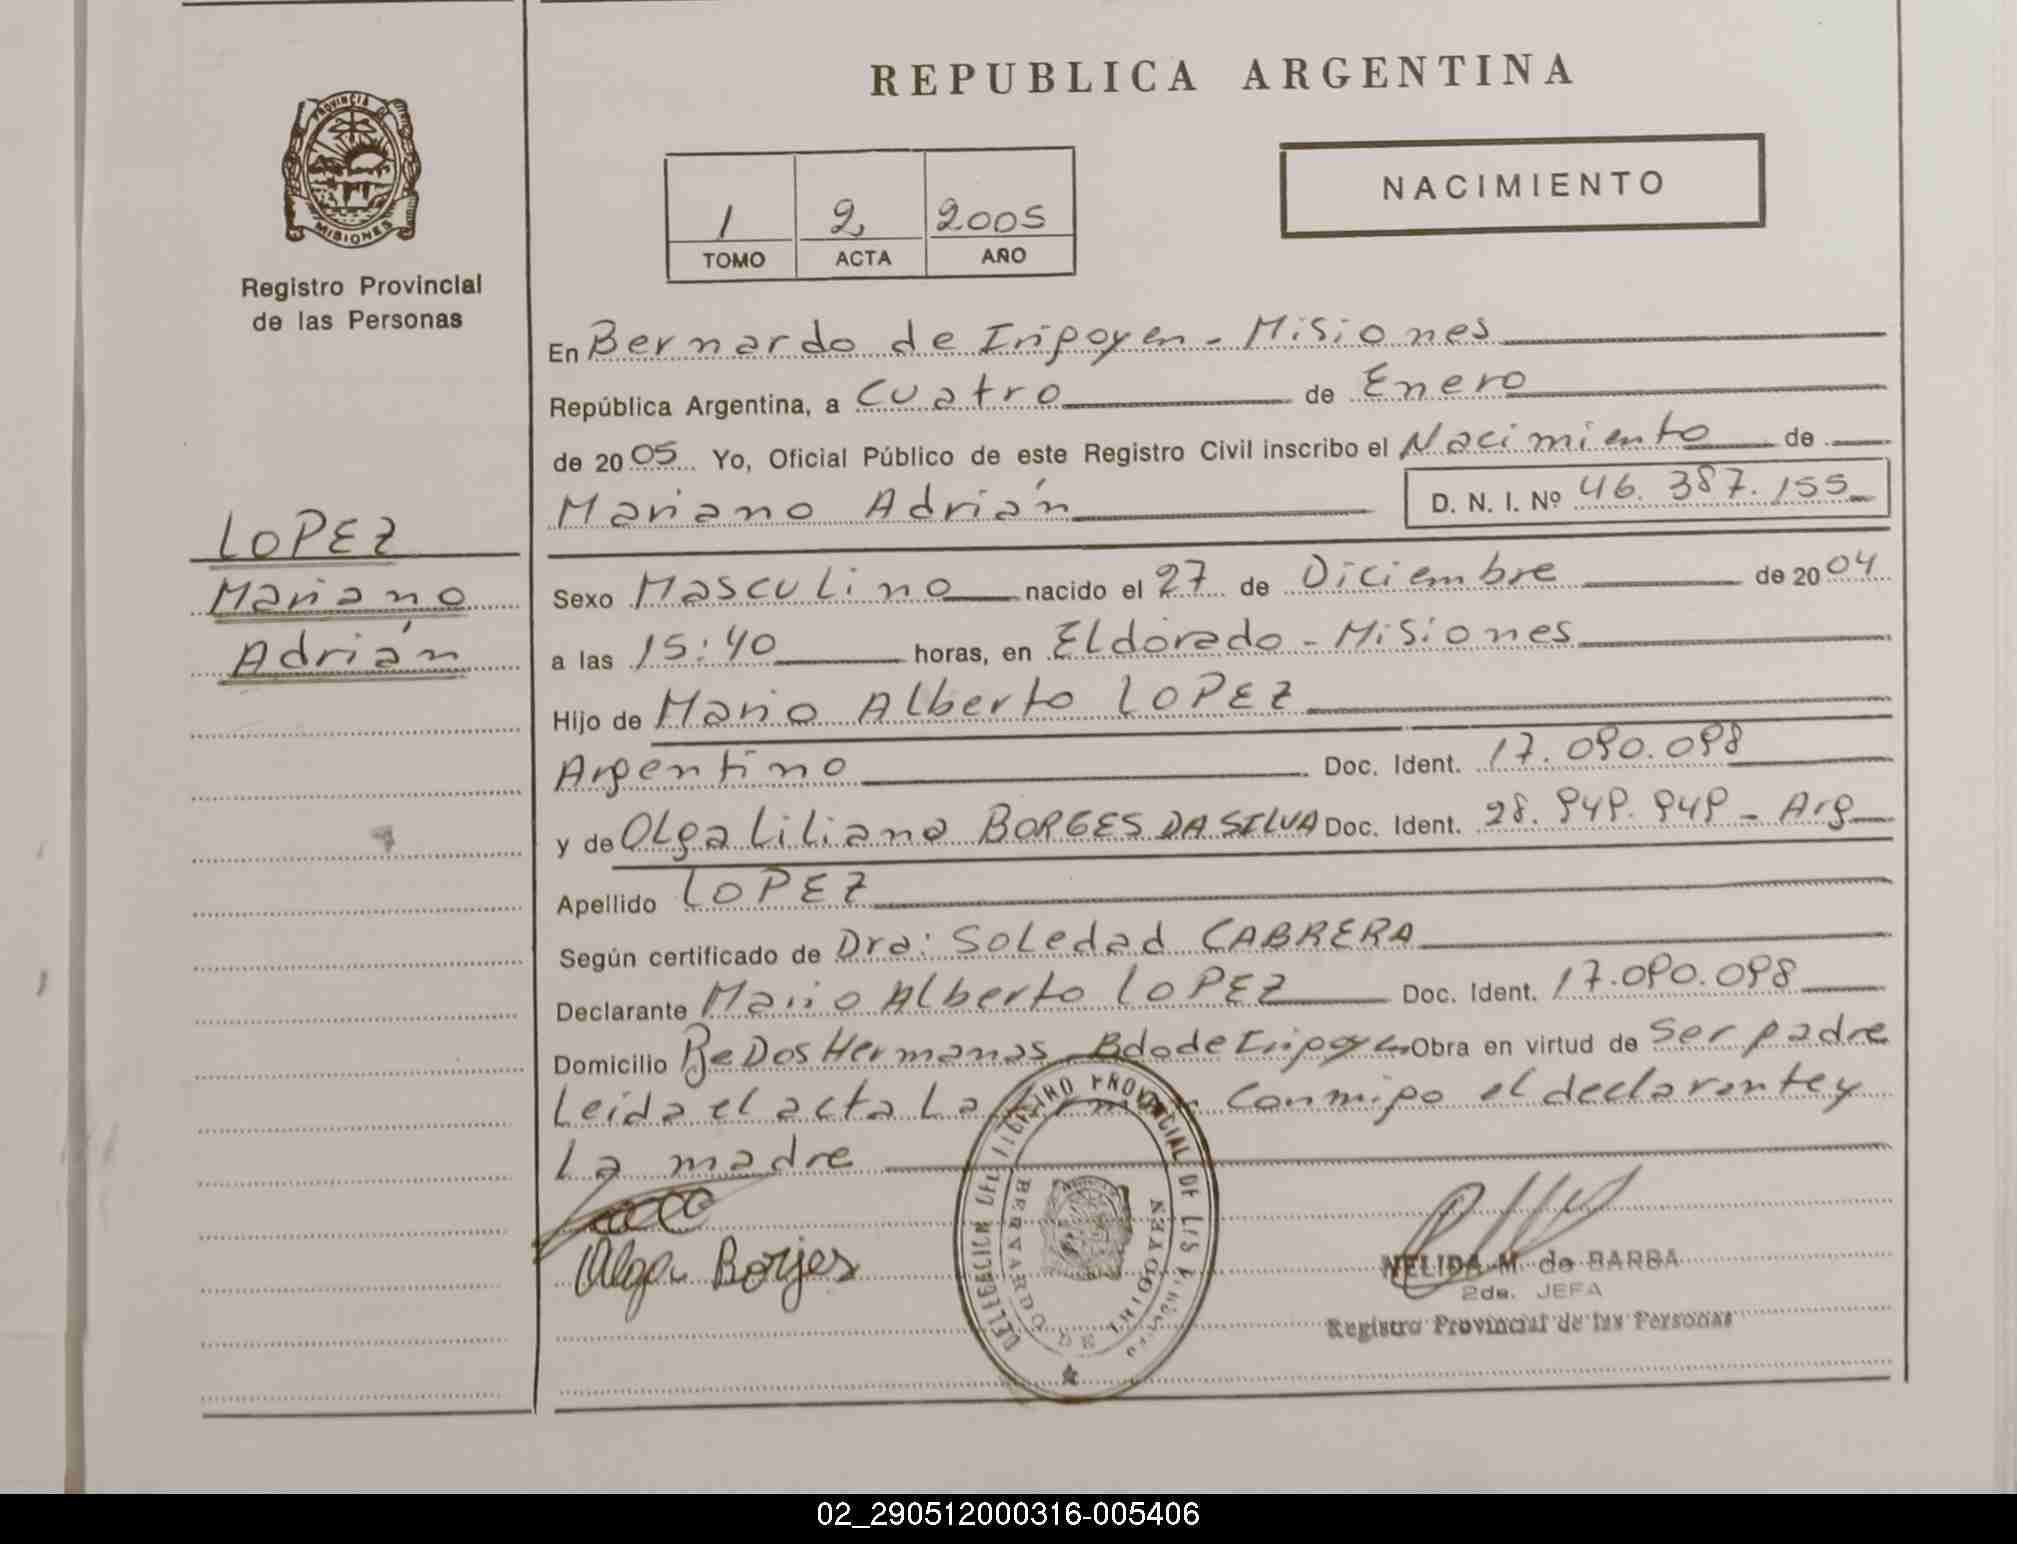 REPUBLICA ARGENTINA
PROVINCIA DE
MISIONES
Registro Provincial
de las Personas
NACIMIENTO
1 2 2005
TOMO ACTA AÑO
LOPEZ
Mariano
Adrián
En Bernardo de Irigoyen - Misiones
República Argentina, a Cuatro de Enero
de 2005 Yo, Oficial Público de este Registro Civil inscribo el Nacimiento de
Mariano Adrián D. N. I. Nº 46.387.155
Sexo Masculino nacido el 27 de Diciembre de 2004
a las 15:40 horas, en Eldorado - Misiones
Hijo de Mario Alberto LOPEZ
Argentino Doc. Ident. 17.090.098
y de Olga Liliana BORGES DA SILVA Doc. Ident. 28.949.949 - Arg
Apellido LOPEZ
Según certificado de Dra: Soledad CABRERA
Declarante Mario Alberto LOPEZ Doc. Ident. 17.090.098
Domicilio Dos Hermanas Bdo de Irigoyen Obra en virtud de Ser padre
Leída el acta La conmigo el declarante y
La madre
Olga Borjes
DELEGACION DEL REGISTRO PROVINCIAL DE LAS PERSONAS
BERNARDO DE IRIGOYEN
NELIDA M. de BARBA
2da. JEFA
Registro Provincial de las Personas
02_290512000316-005406